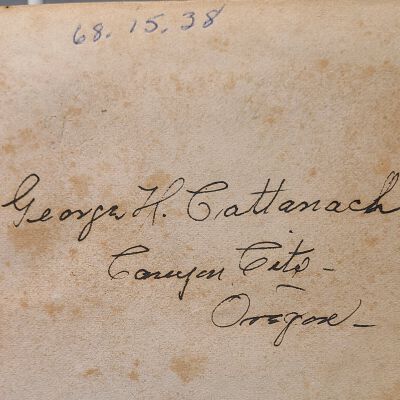 68.15.38
George H. Cattanach
Canyon City-
Oregon-